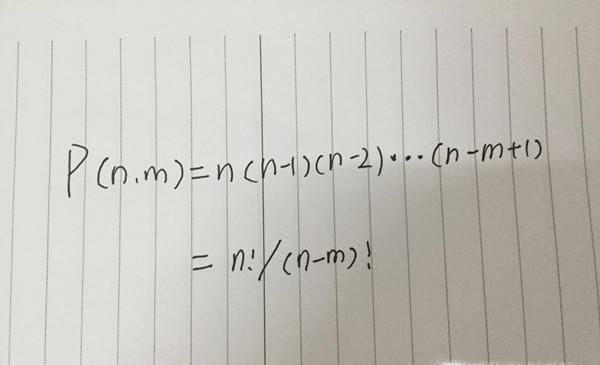 P(n.m)=n(n-1)(n-2)···(n-m+1)
=n!/(n-m)!